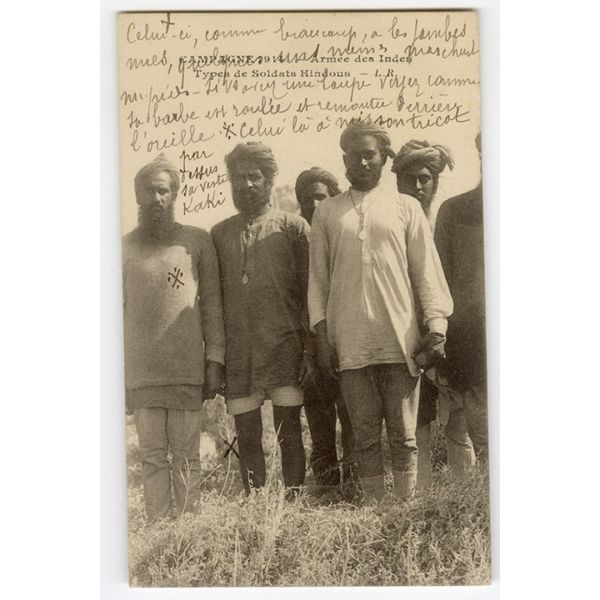 Celui-ci, comme beaucoup, a les jambes
CAMPAGNE 1914 — Armée des Indes
nues, quelques uns même marchent
Types de Soldats Hindous — I. R.
nu-pieds. Si vous avez une loupe voyez comme
sa barbe est roulée et remontée derrière
l'oreille ※ Celui là a mis son tricot
par
dessus
sa veste
Kaki
※
x